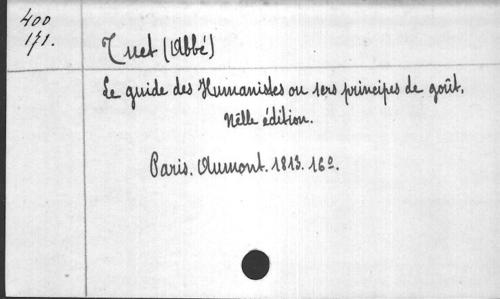 400
171.
Tuet (Abbé)
Le guide des Humanistes ou 1ers principes de goût,
Nelle édition.
Paris. Aumont. 1813. 16º.